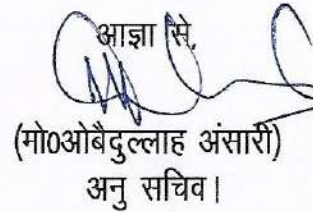 आज्ञा से,
(मो0ओबैदुल्लाह अंसारी)
अनु सचिव।